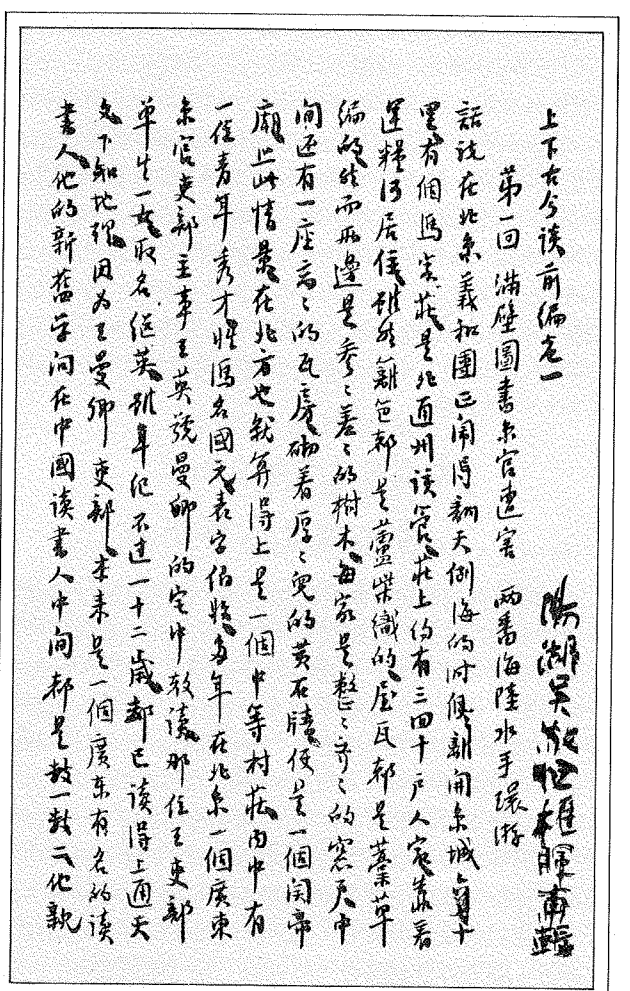 上下古今談前編卷一
陽湖吳敬恒稚暉甫輯
第一回 滿壁圖書京官遭害 兩番海陸水手環游
話說在北京義和團正鬧得翻天倒海的时候離開京城十
里有個馬家莊是北通州該管莊上約有三四十戶人家靠着
運糧河居住雖然籬笆都是蘆柴織的屋瓦都是藁草
編的然而兩邊是參々差々的樹木每家是整々齐々的窓戶中
间还有一座高々的瓦房砌着厚々兒的黄石牆便是一個関帝
廟此情景在北方也就算得上是一個中等村莊內中有
一位青年秀才姓馮名國元表字伯多年在北京一個廣東
京官吏部主事王英號曼卿的宅中教讀那位王吏部
單生一女取名継英雖年紀不過一十二歲都已讀得上通天
文下知地理因为王曼卿吏部本来是一個廣东有名的读
書人他的新舊学问在中國读書人中间都是数一数二他親